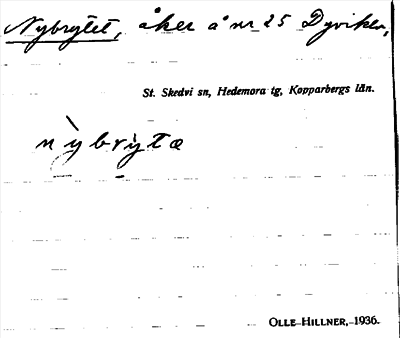 Nybrytet, åker å nr 25 Dyvika,
St. Skedvi sn, Hedemora tg, Kopparbergs län.
nỳbrỳtæ
OLLE HILLNER, 1936.